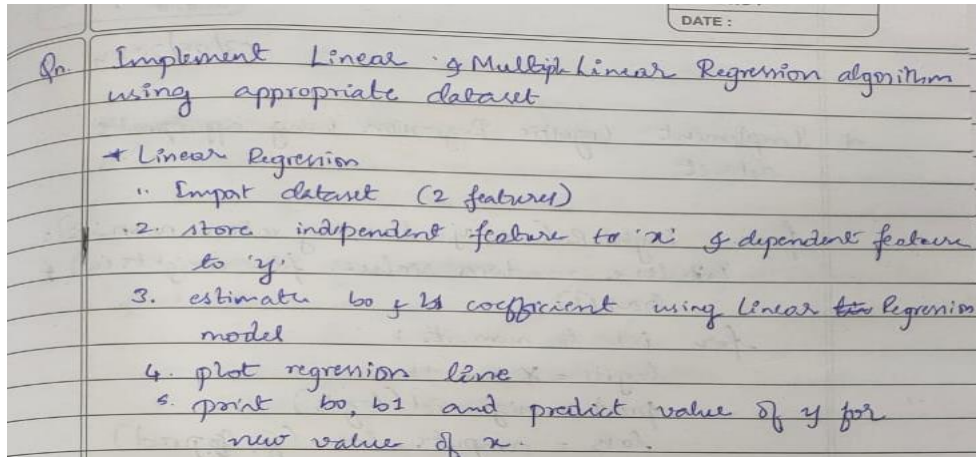 DATE :
Qn. Implement Linear & Multiple Linear Regression algorithm
using appropriate dataset
* Linear Regression
1. Import dataset (2 features)
2. store independent feature to 'x' & dependent feature
to 'y'
3. estimate b0 & b1 coefficient using Linear Regression
model
4. plot regression line
5. print b0, b1 and predict value of y for
new value of x.